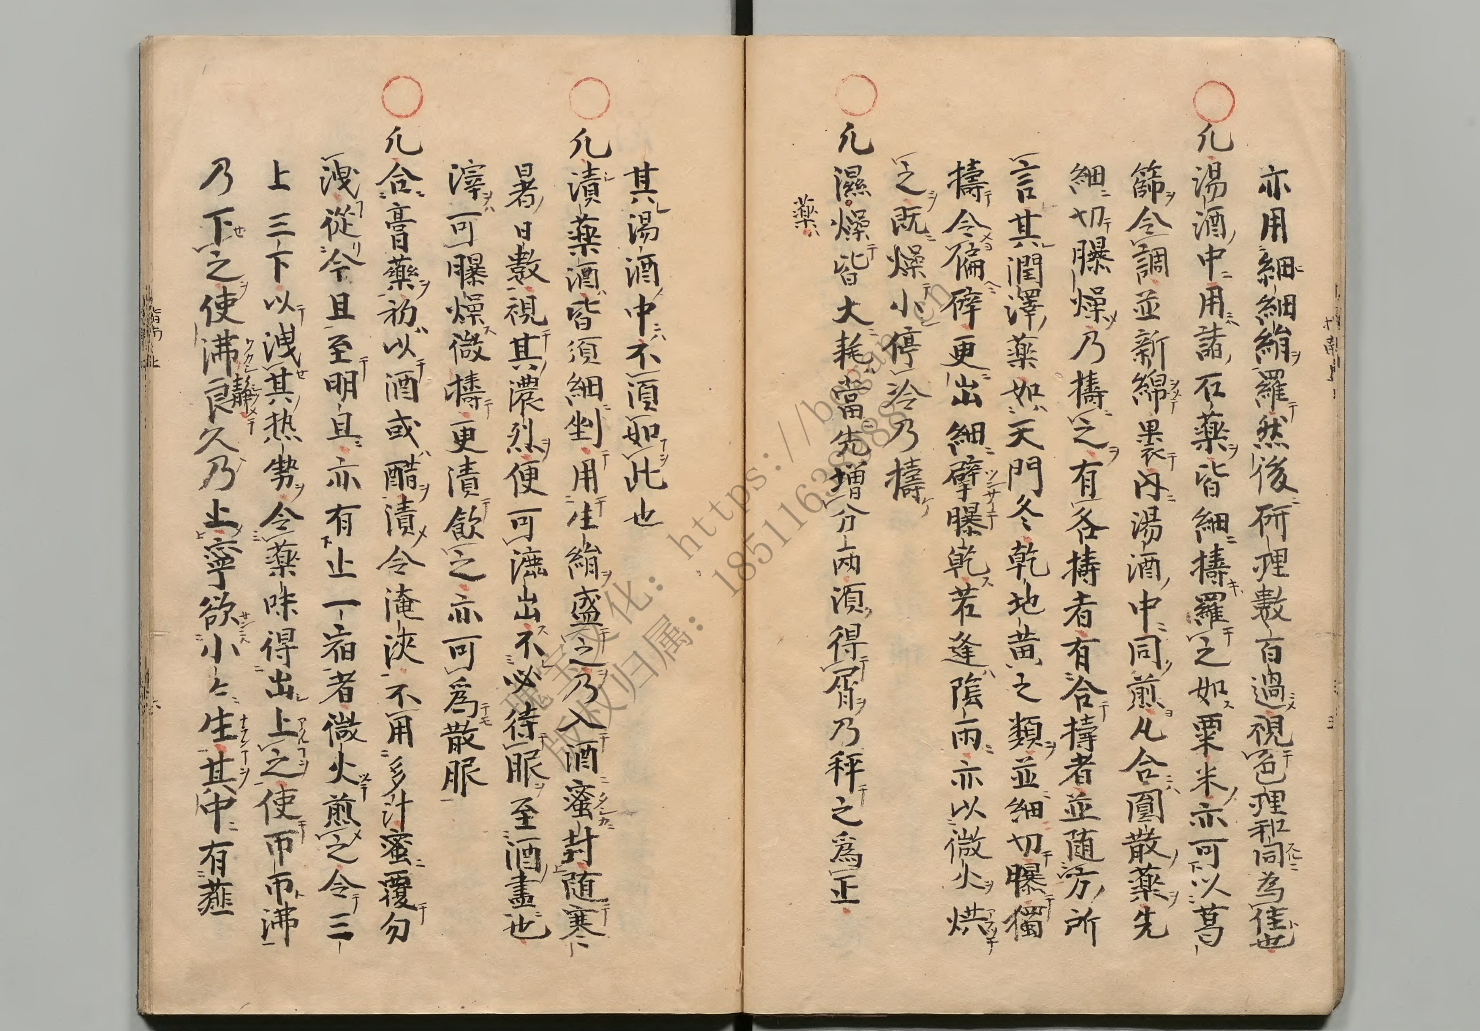 亦用細細絹羅然後研理數百過視色理和同為佳也
凢湯酒中用諸石藥皆細擣羅之如粟米亦可以葛
篩令調並新綿裹內湯酒中同煎凢合圓散藥先
細切曝燥乃擣之有各擣者有合擣者並随方所
言其潤澤藥如天門冬乾地黄之類並細切曝獨
擣令偏碎更出細擘曝乾若逢陰雨亦以微火烘
之既燥小停冷乃擣
凢濕燥皆大耗當先增分兩湏得屑乃秤之為正
藥
其湯酒中不湏如此也
凢漬藥酒皆須細剉用生絹盛之乃入酒蜜封随寒
暑日數視其濃烈便可漉出不必待服至酒盡也
滓可曝燥微擣更漬飲之亦可爲散服
凢合膏藥初以酒或醋漬令淹浹不用多汁蜜覆勿
洩從今旦至明旦亦有止一宿者微火煎之令三
上三下以洩其热勢令藥味得出上之使帀帀沸
乃下之使沸静良久乃上寧欲小々生其中有薤
https://bogan.cn
版权归属：18511636988